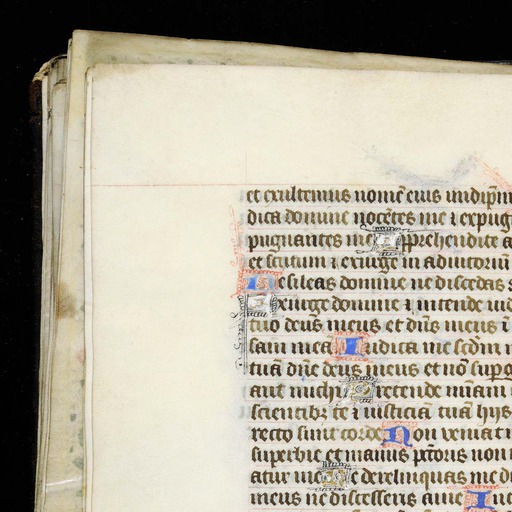 et exultemus nomē eius in idip̄m
dica domine nocētes me ⁊ expug
pugnantes me Apprehendite a
et scutum ⁊ exurge in adiutoriū
Ne sileas domine ne discedas
Exurge domine ⁊ intende iud
tuo deus meus et dn̄s meus ī
sam mea Iudica me scd̄m
tuā dn̄e deus meus et nō sup̄g
aut̄ michi Pretende m̄iam
scientibꝫ te ⁊ iusticiā tuā hijs
recto sunt corde Non veniat
superbie et manus pctōris non
atur me Ne derelinquas me d
meus ne discesseris a me In